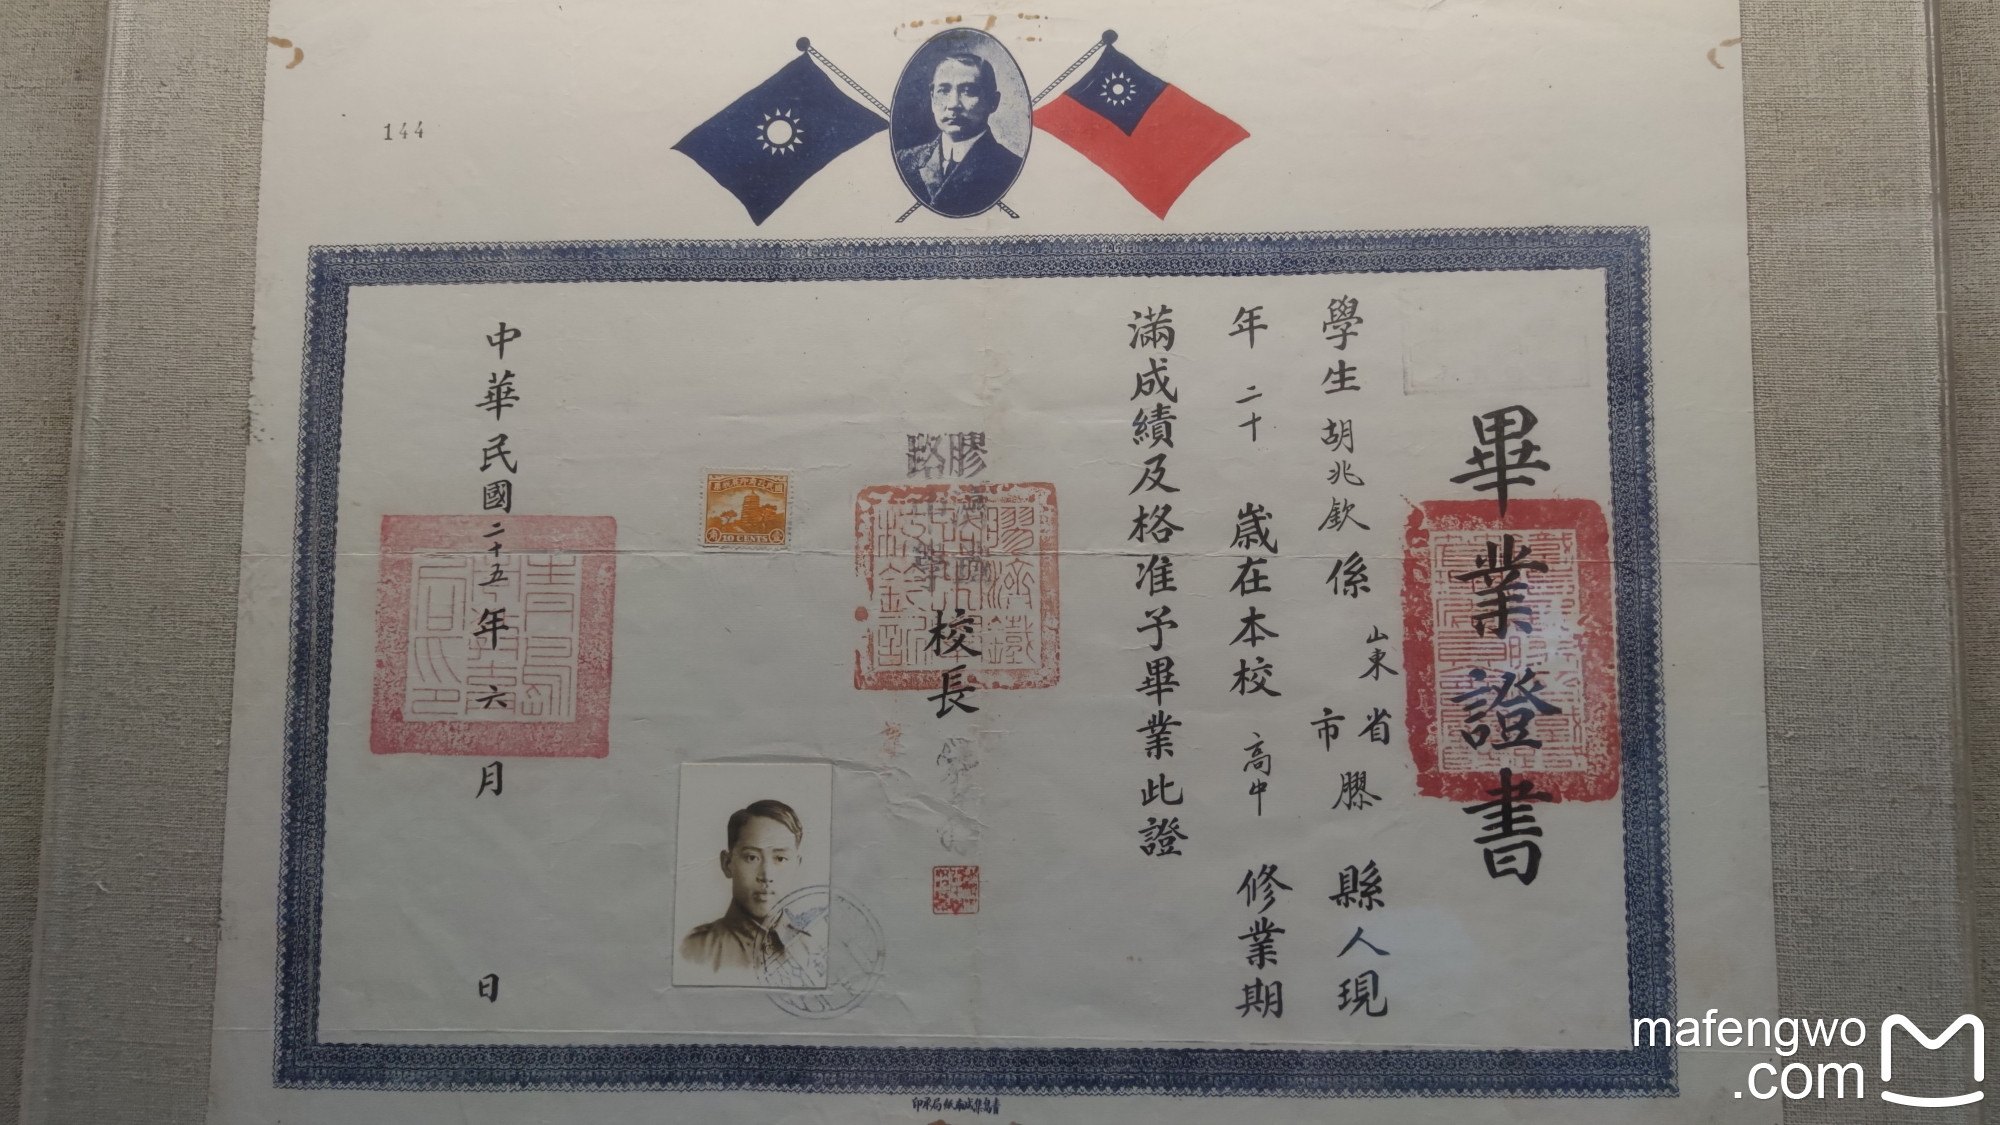 144
畢業證書
學生胡兆欽係山東省市膠縣人現
年二十歲在本校高中修業期
滿成績及格准予畢業此證
膠濟
路
校長
10 CENTS
中華民國二十五年六月日
mafengwo
.com